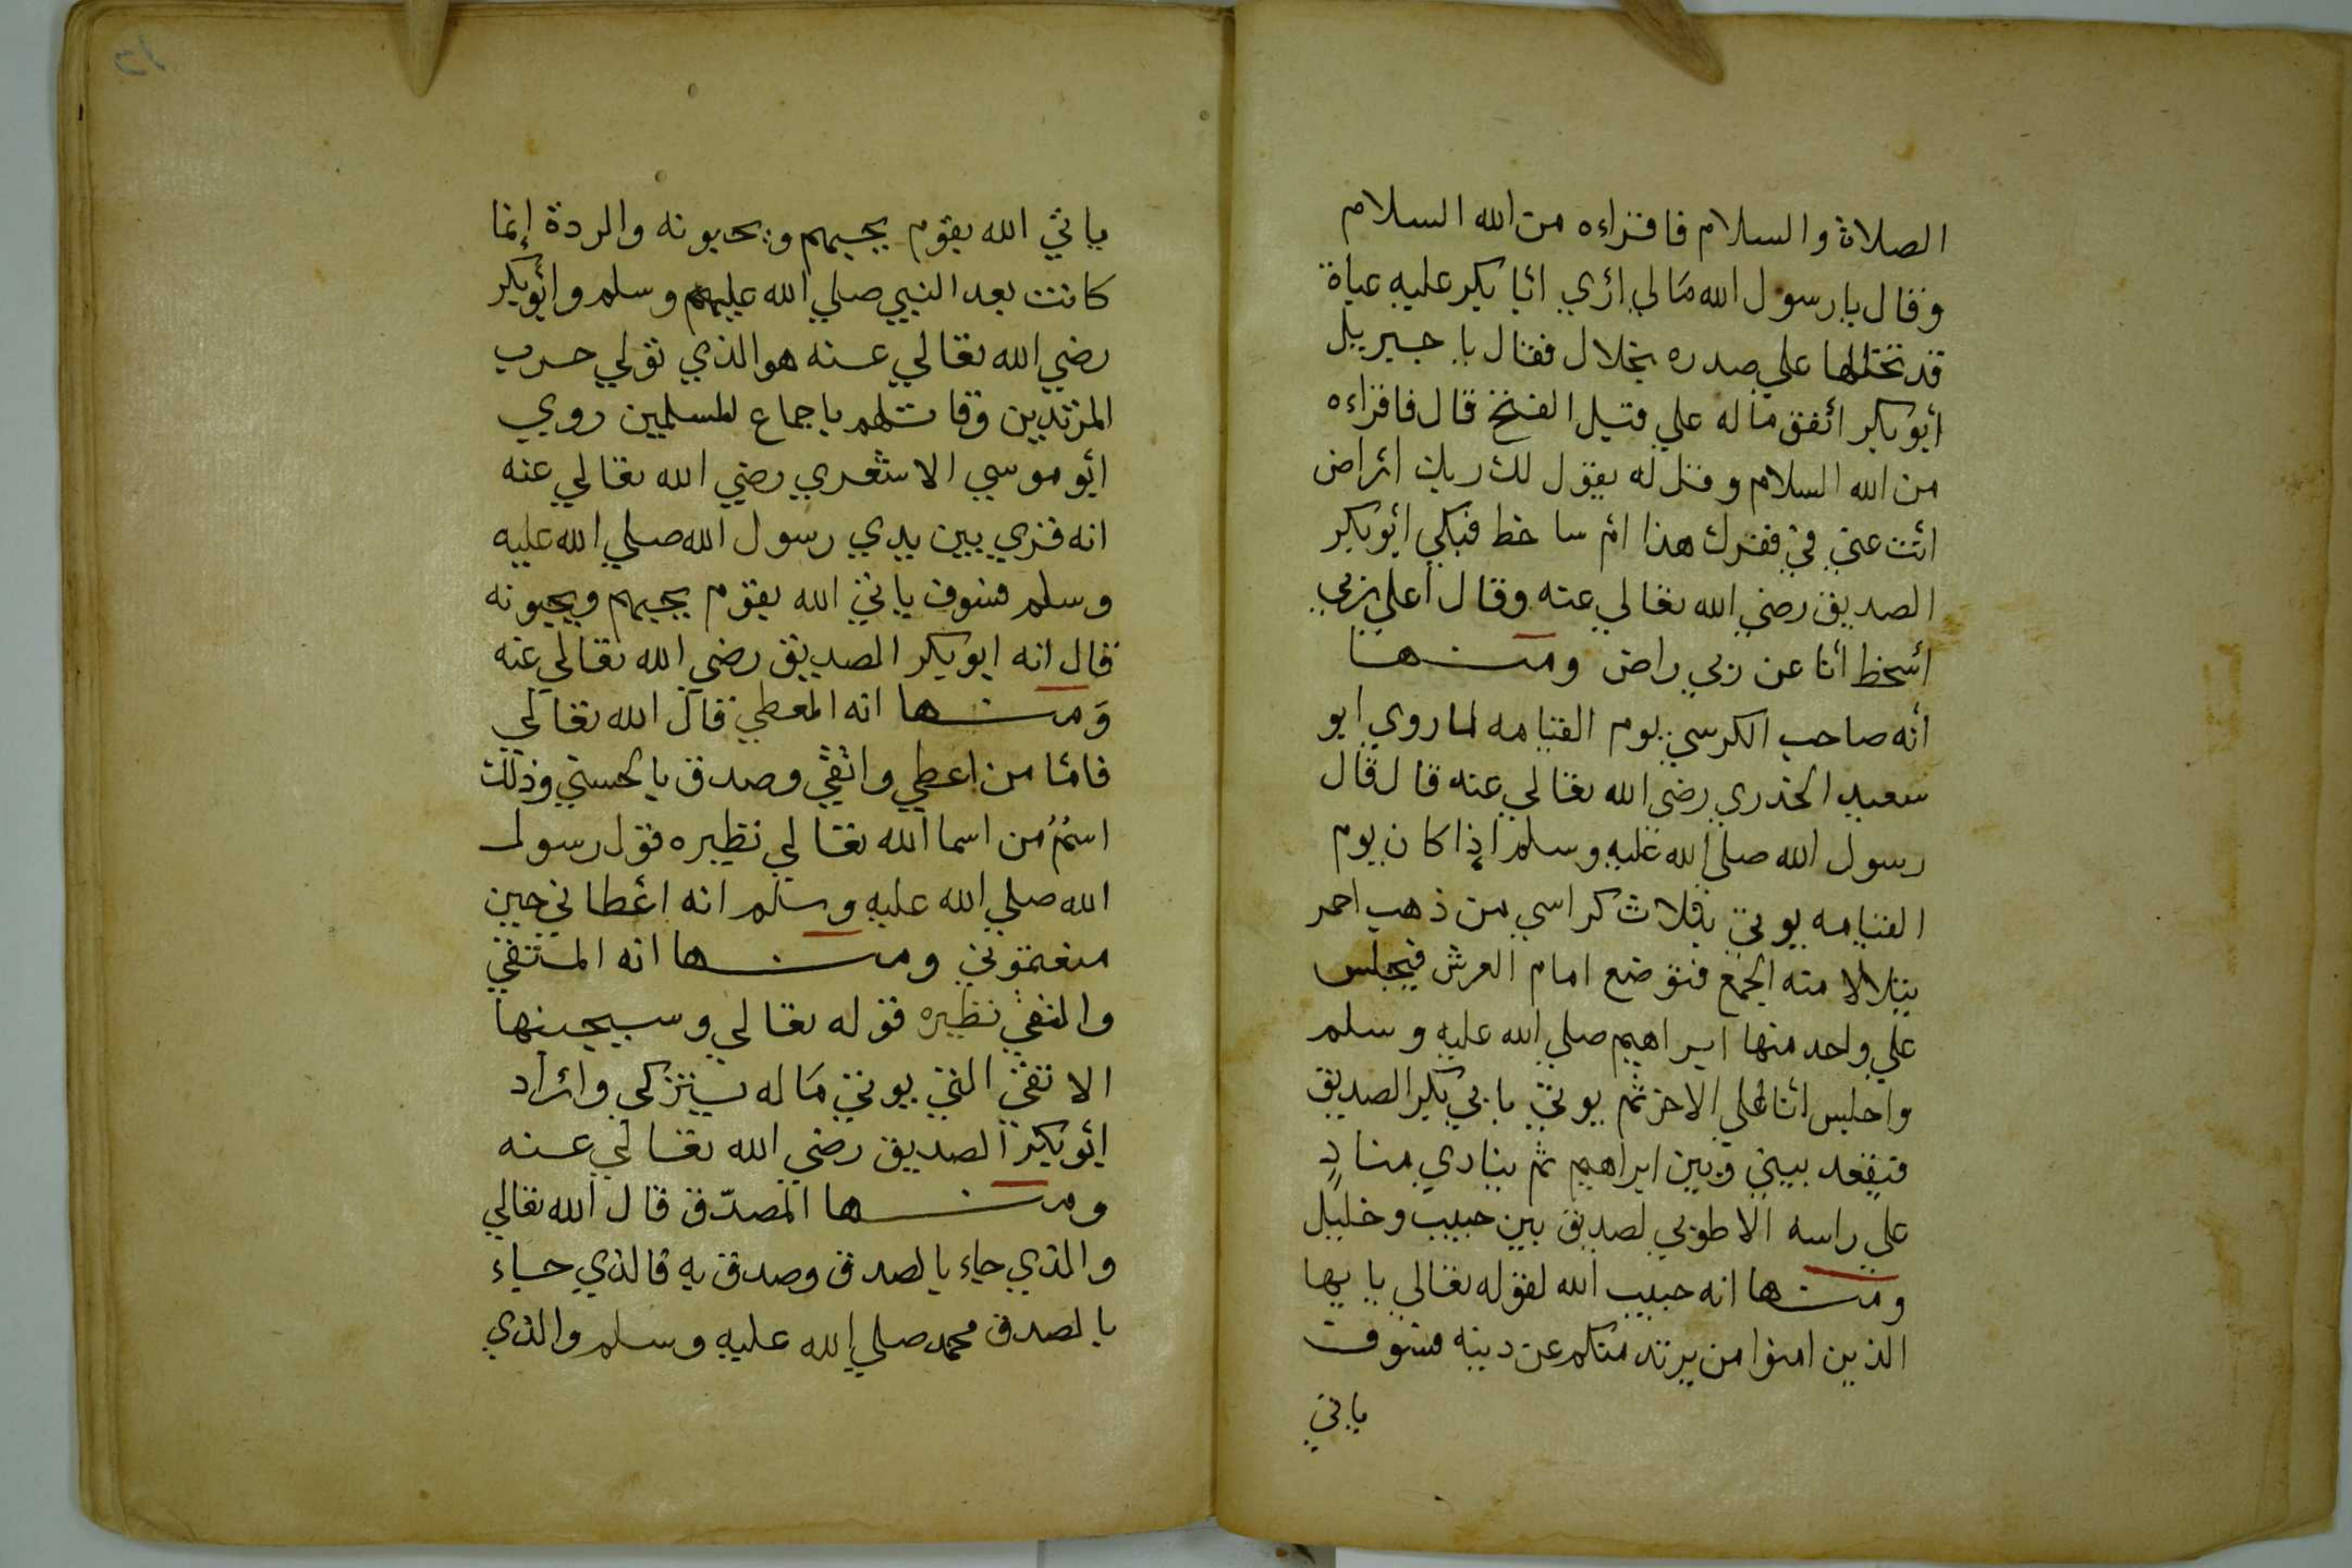 الصلاة والسلام فاقراءه من الله السلام
وقال يا رسول الله مالي أري أبا بكر عليه عباة
قد تخللها علي صدره بخلال فقال يا جبريل
أبو بكر أنفق ماله علي قبل الفتح قال فاقراءه
من الله السلام وقل له يقول لك ربك أراض
أنت عني في فقرك هذا أم ساخط فبكي أبو بكر
الصديق رضي الله تعالي عنه وقال أعلي ربي
أسخط أنا عن ربي راض ومنها
أنه صاحب الكرسي يوم القيامه لما روي ابو
سعيد الخدري رضي الله تعالي عنه قال قال
رسول الله صلي الله عليه وسلم اذا كان يوم
القيامه يوتي بثلاث كراسي من ذهب احمر
يتلالا منه الجمع فتوضع امام العرش فيجلس
علي واحد منها ابراهيم صلي الله عليه وسلم
واجلس أنا علي الاخر ثم يوتي بابي بكر الصديق
فيقعد بيني وبين ابراهيم ثم ينادي منادٍ
علي راسه الا طوبي لصديق بين حبيب وخليل
ومنها انه حبيب الله لقوله تعالي يايها
الذين امنوا من يرتد منكم عن دينه فسوف
ياتي
ياتي الله بقوم يحبهم ويحبونه والردة إنما
كانت بعد النبي صلي الله عليهم وسلم وأبو بكر
رضي الله تعالي عنه هو الذي تولي حرب
المرتدين وقاتلهم باجماع المسلمين روي
أبو موسي الاشعري رضي الله تعالي عنه
انه قري بين يدي رسول الله صلي الله عليه
وسلم فسوف ياتي الله بقوم يحبهم ويحبونه
قال انه ابو بكر الصديق رضي الله تعالي عنه
ومنها انه المعطي قال الله تعالي
فامّا من اعطي واتقي وصدق بالحسني وذلك
اسمٌ من اسما الله تعالي نظيره قول رسول
الله صلي الله عليه وسلم انه أعطاني حين
منعتموني ومنها انه المتقي
والتقي نظيره قوله تعالي وسيجنبها
الاتقي الذي يوتي ماله يتزكي وأراد
أبو بكر الصديق رضي الله تعالي عنه
ومنها المصدّق قال الله تعالي
والذي جاء بالصدق وصدق به فالذي جاء
بالصدق محمد صلي الله عليه وسلم والذي